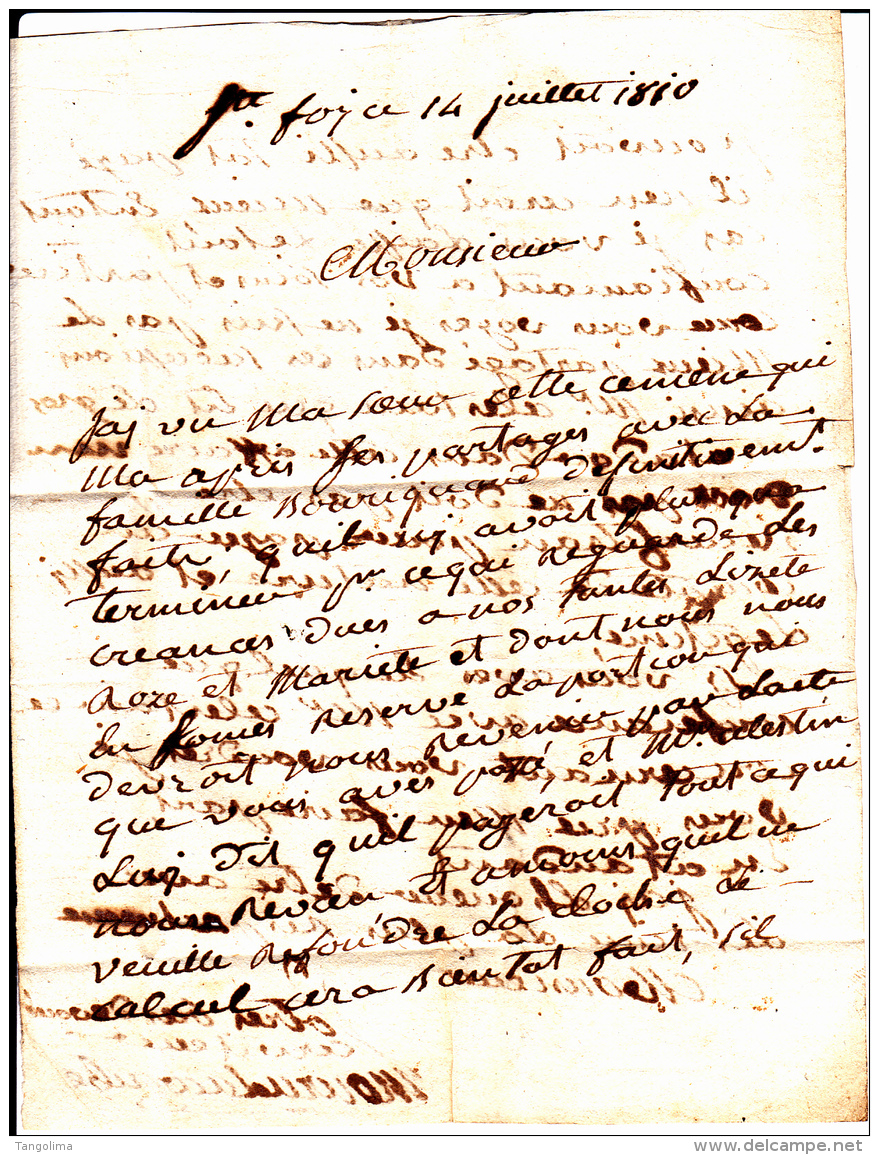 Ste. foy ce 14 juillet 1810
Monsieur
Jaj vu Ma soeur cette cemene qui
Ma apris ses partages avec La
famille Bouriquaud definitivemt.
faits, quil nj avoit plus qua
terminer pr. cequi reguarde Les
creances dues a nos tantes Lizete
Roze et Mariete et dont nous nous
En somes Reservé La portion qui
devroit nous Revenir par Lacte
que vous aves passé, et Mr. celestin
Luj dit quil payeroit tout cequi
nous Revien Et amoins quil ne
veuille Refondre La cloche Le
calcul cera Bientot fait, sil
Tangolima
www.delcampe.net